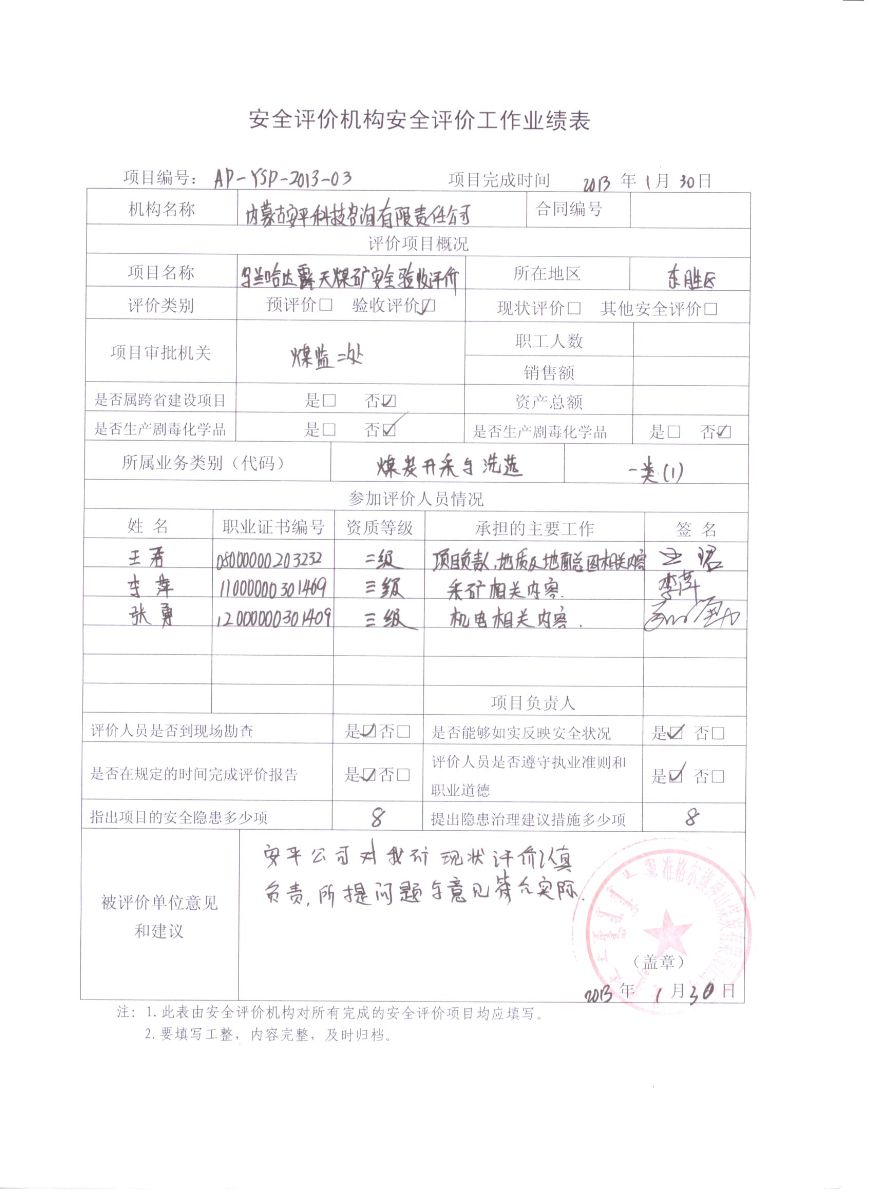 安全评价机构安全评价工作业绩表
项目编号： AP-YSP-2013-03 项目完成时间 2013 年 1 月 30 日
机构名称 内蒙古安平科技咨询有限责任公司 合同编号
评价项目概况
项目名称 乌兰哈达露天煤矿安全验收评价 所在地区 东胜区
评价类别 预评价□ 验收评价☑ 现状评价□ 其他安全评价□
项目审批机关 煤监二处 职工人数
销售额
是否属跨省建设项目 是□ 否☑ 资产总额
是否生产剧毒化学品 是□ 否☑ 是否生产剧毒化学品 是□ 否☑
所属业务类别（代码） 煤炭开采与洗选 一类(1)
参加评价人员情况
姓 名 职业证书编号 资质等级 承担的主要工作 签 名
王君 0800000203232 二级 项目负责人,地质及地面总图相关内容 王君
李萍 1100000301409 三级 采矿相关内容. 李萍
张勇 1200000301409 三级 机电相关内容.
项目负责人
评价人员是否到现场勘查 是☑否□ 是否能够如实反映安全状况 是☑ 否□
是否在规定的时间完成评价报告 是☑否□ 评价人员是否遵守执业准则和
职业道德 是☑ 否□
指出项目的安全隐患多少项 8 提出隐患治理建议措施多少项 8
被评价单位意见
和建议
安平公司对我矿现状评价认真
负责,所提问题与意见符合实际.
（盖章）
2013 年 1 月 30 日
注：1.此表由安全评价机构对所有完成的安全评价项目均应填写。
2.要填写工整，内容完整，及时归档。